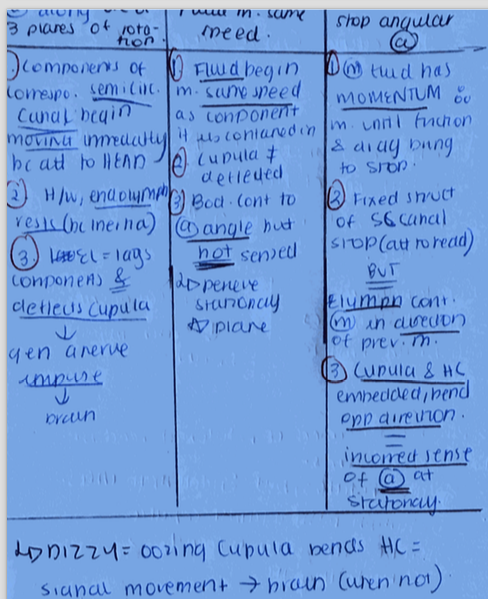 3 planes of rota-
tion.
① Components of
correspo. semicirc.
canal begin
moving immediately
bc att to HEAD
② H/w, endolymph
rests (bc inertia)
③ = lags
components &
deflects cupula
↓
gen a nerve
impulse
↓
brain
fluid m. same
speed.
① Fluid begin
m. same speed
as component
it is contained in
② Cupula ≠
deflected
③ Bod. cont to
ⓐ angle but
not sensed
↳ perceive
stationary
plane
stop angular
ⓐ
① ⓜ fluid has
MOMENTUM ∴
m. until friction
& drag bring
to stop.
② Fixed struct
of SC canal
stop (att to head)
BUT
Elymph cont.
ⓜ in direction
of prev. m.
③ Cupula & HC
embedded, bend
opp direction.
=
incorrect sense
of ⓐ at
stationary.
↳ DIZZY = oozing cupula bends HC =
signal movement → brain (when not).